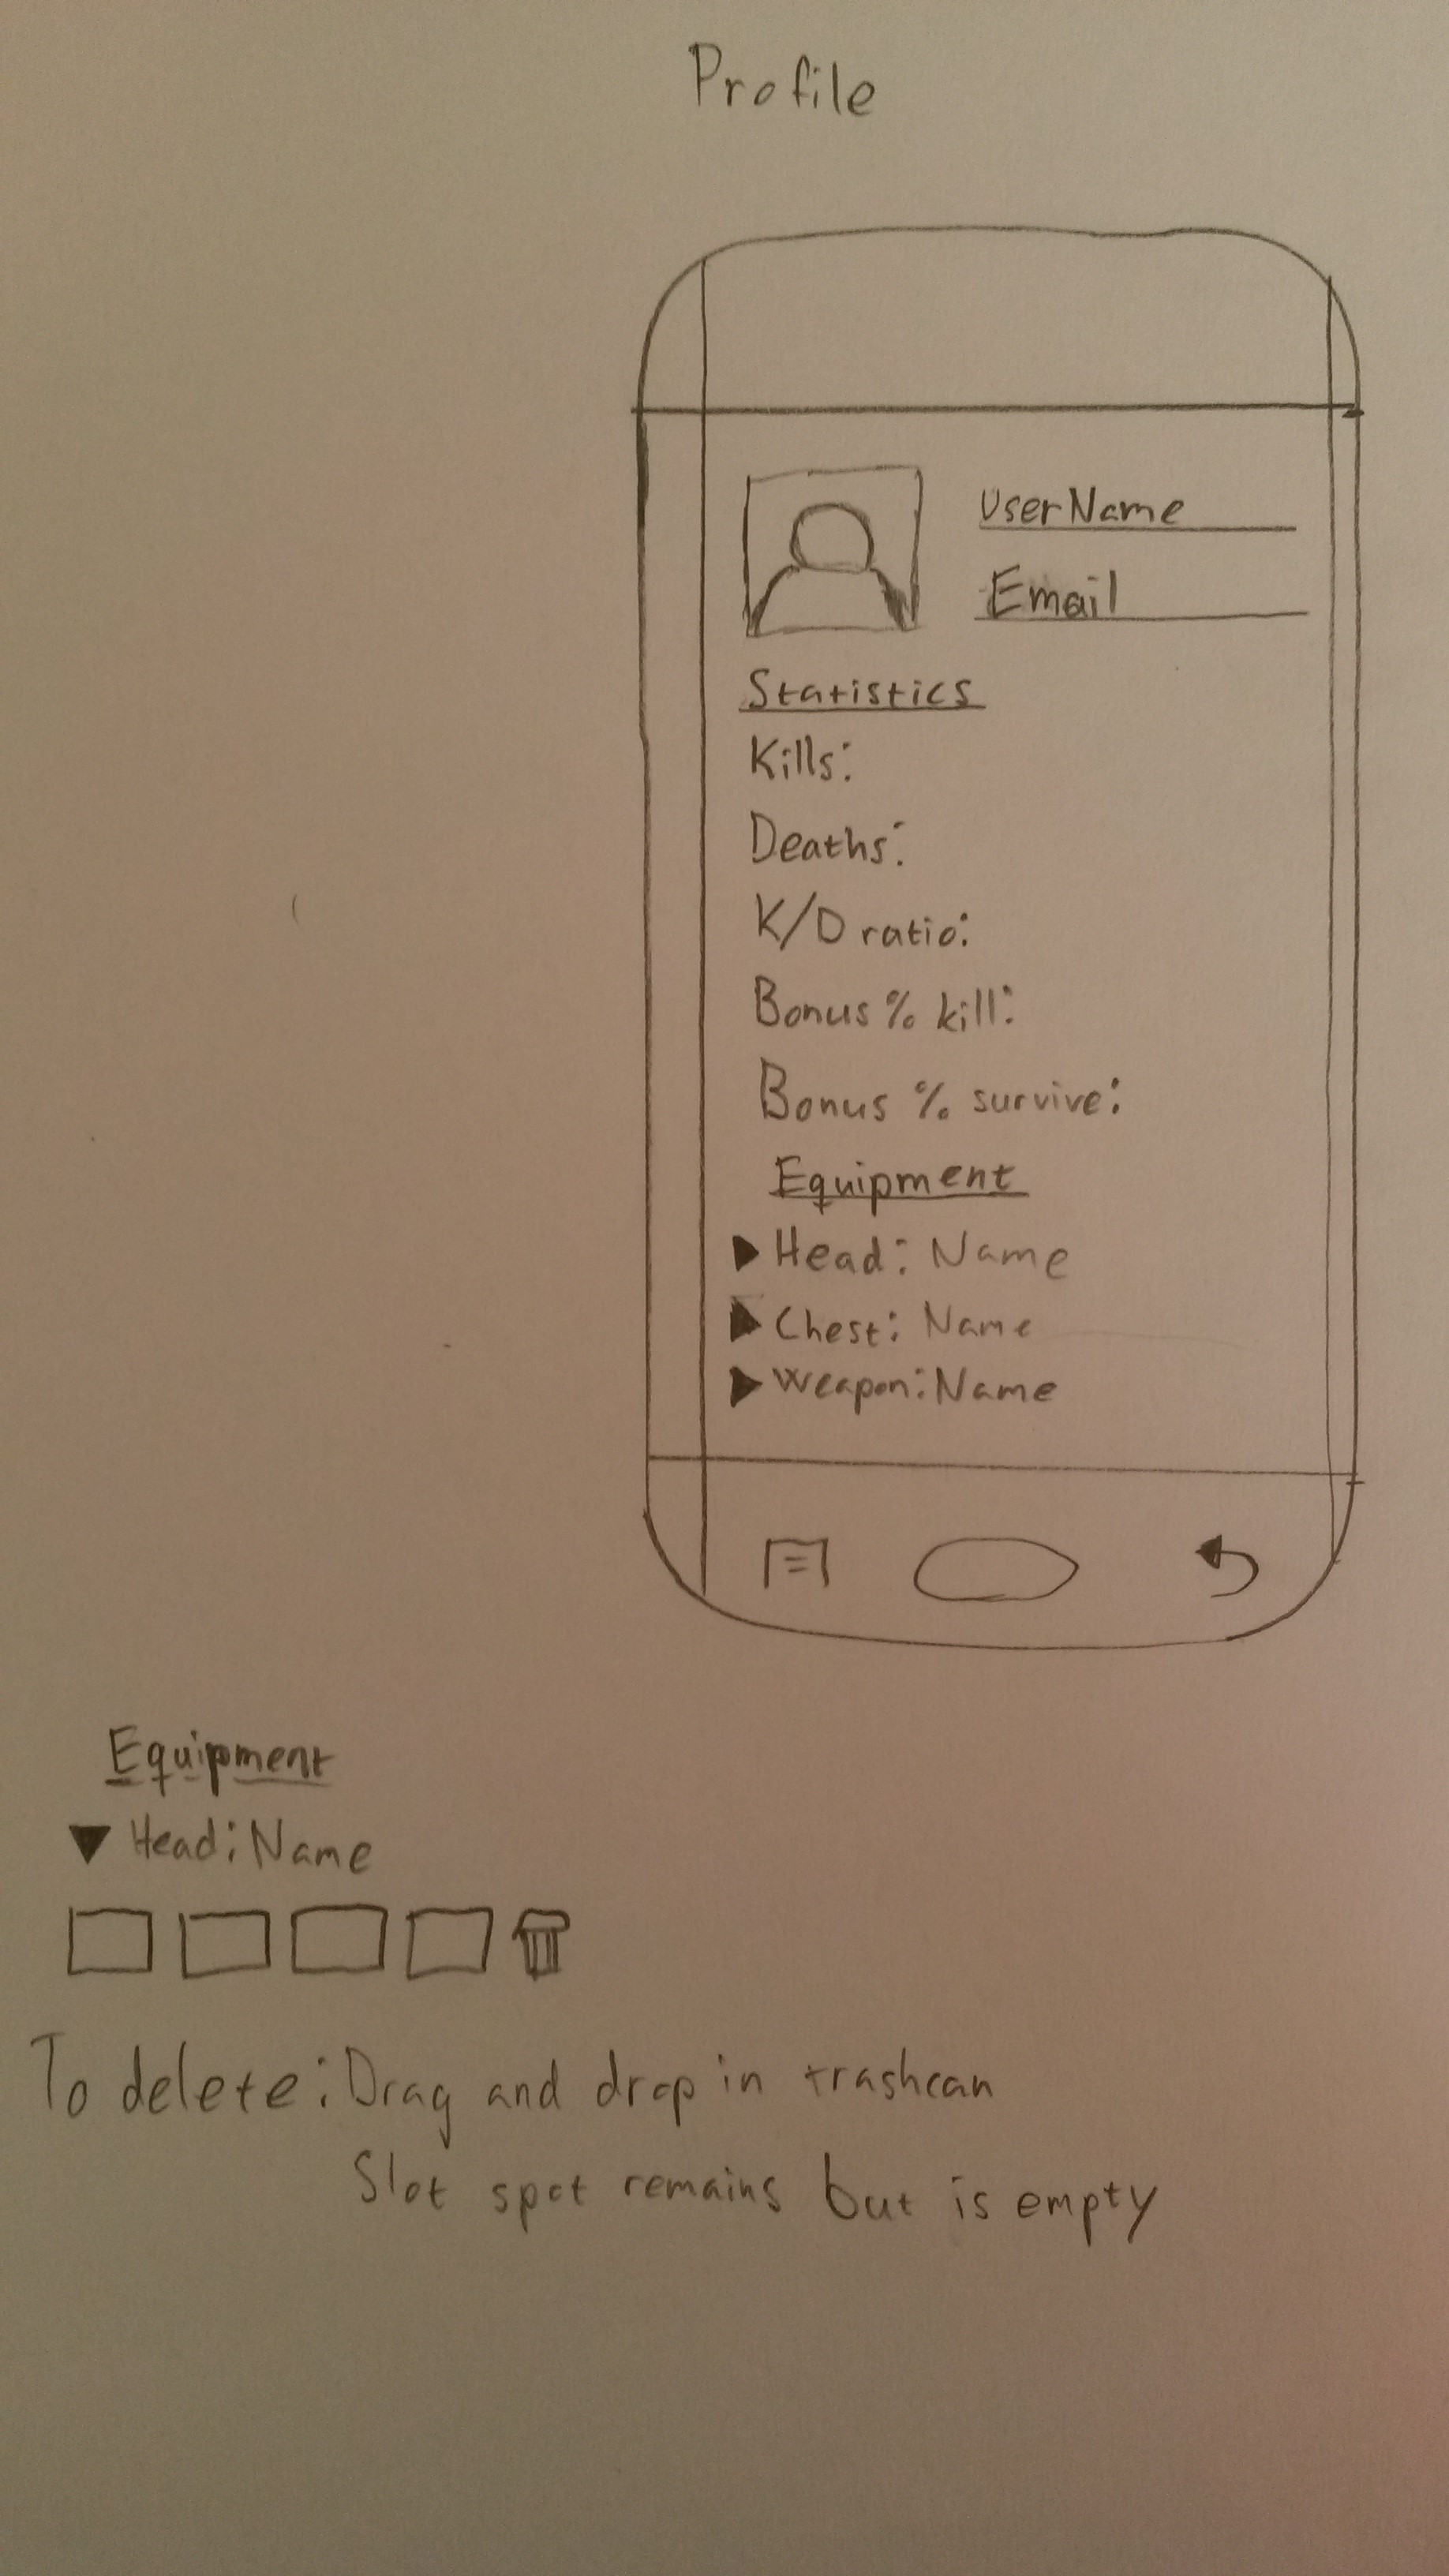 Profile
UserName
Email
Statistics
Kills:
Deaths:
K/D ratio:
Bonus % kill:
Bonus % survive:
Equipment
Head: Name
Chest: Name
Weapon: Name
Equipment
Head: Name
To delete: Drag and drop in trashcan
Slot spot remains but is empty